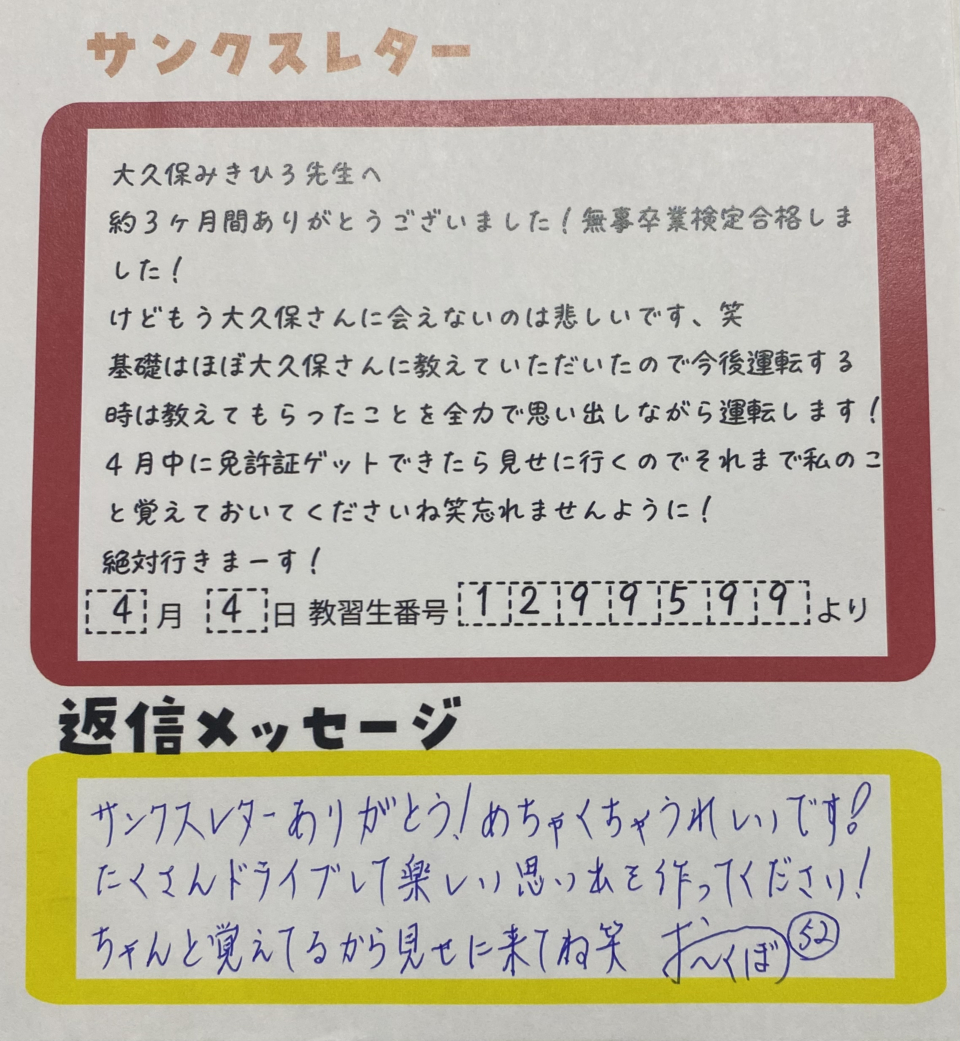 サンクスレター
大久保みきひろ先生へ
約3ヶ月間ありがとうございました!無事卒業検定合格しま
した!
けどもう大久保さんに会えないのは悲しいです、笑
基礎はほぼ大久保さんに教えていただいたので今後運転する
時は教えてもらったことを全力で思い出しながら運転します!
4月中に免許証ゲットできたら見せに行くのでそれまで私のこ
と覚えておいてくださいね笑忘れませんように!
絶対行きまーす!
4月 4日 教習生番号 1299599より
返信メッセージ
サンクスレターありがとう!めちゃくちゃうれしいです!
たくさんドライブして楽しい思い出を作ってください!
ちゃんと覚えてるから見せに来てね笑 おーくぼ 52